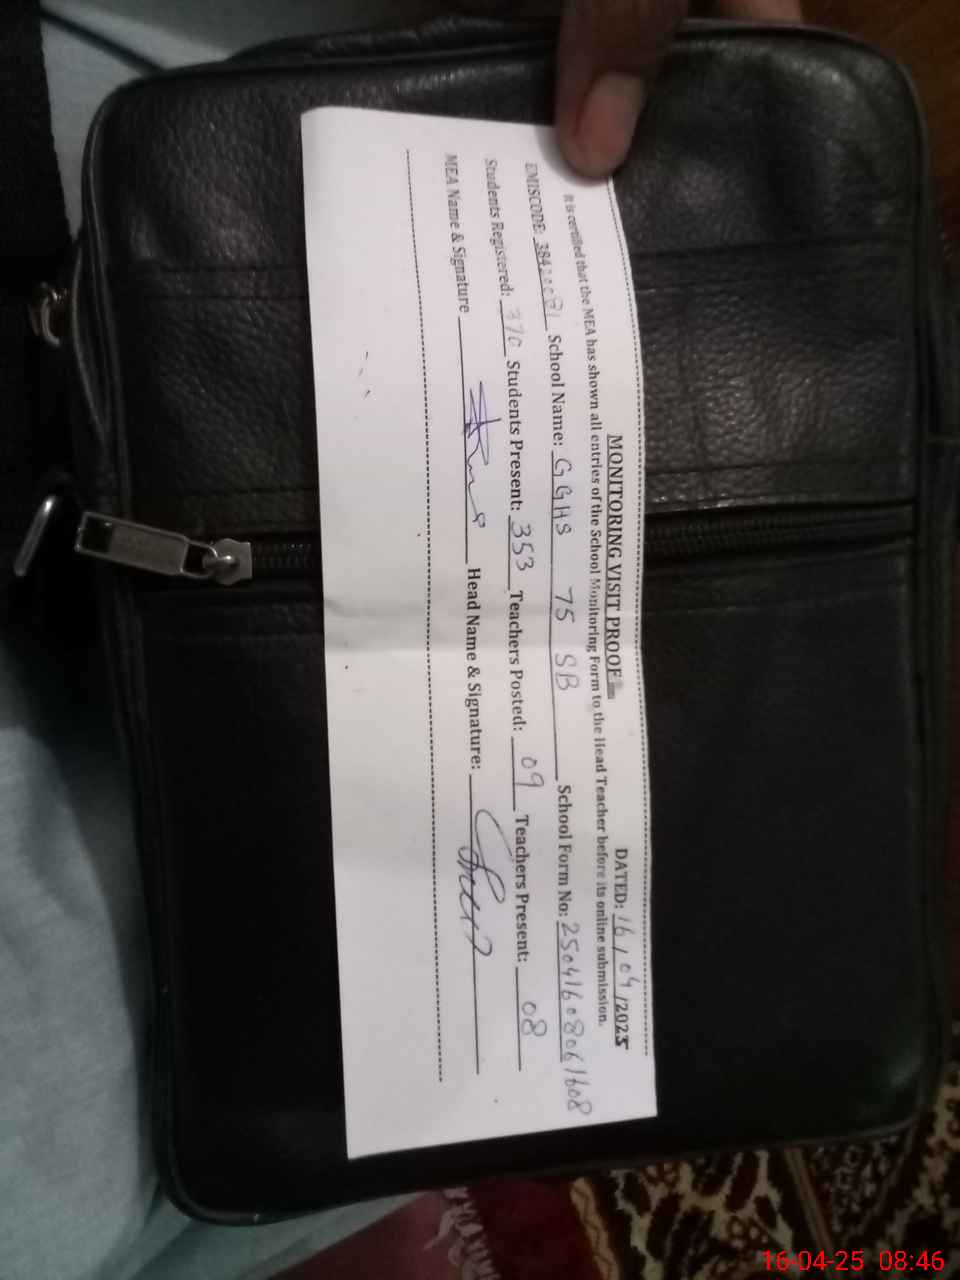 MONITORING VISIT PROOF
DATED: 16/04/2025
It is certified that the MEA has shown all entries of the School Monitoring Form to the Head Teacher before its online submission.
EMISCODE: 38420081 School Name: GGHS 75 SB School Form No: 250416080661608
Students Registered: 370 Students Present: 353 Teachers Posted: 09 Teachers Present: 08
MEA Name & Signature Head Name & Signature:
16-04-25 08:46